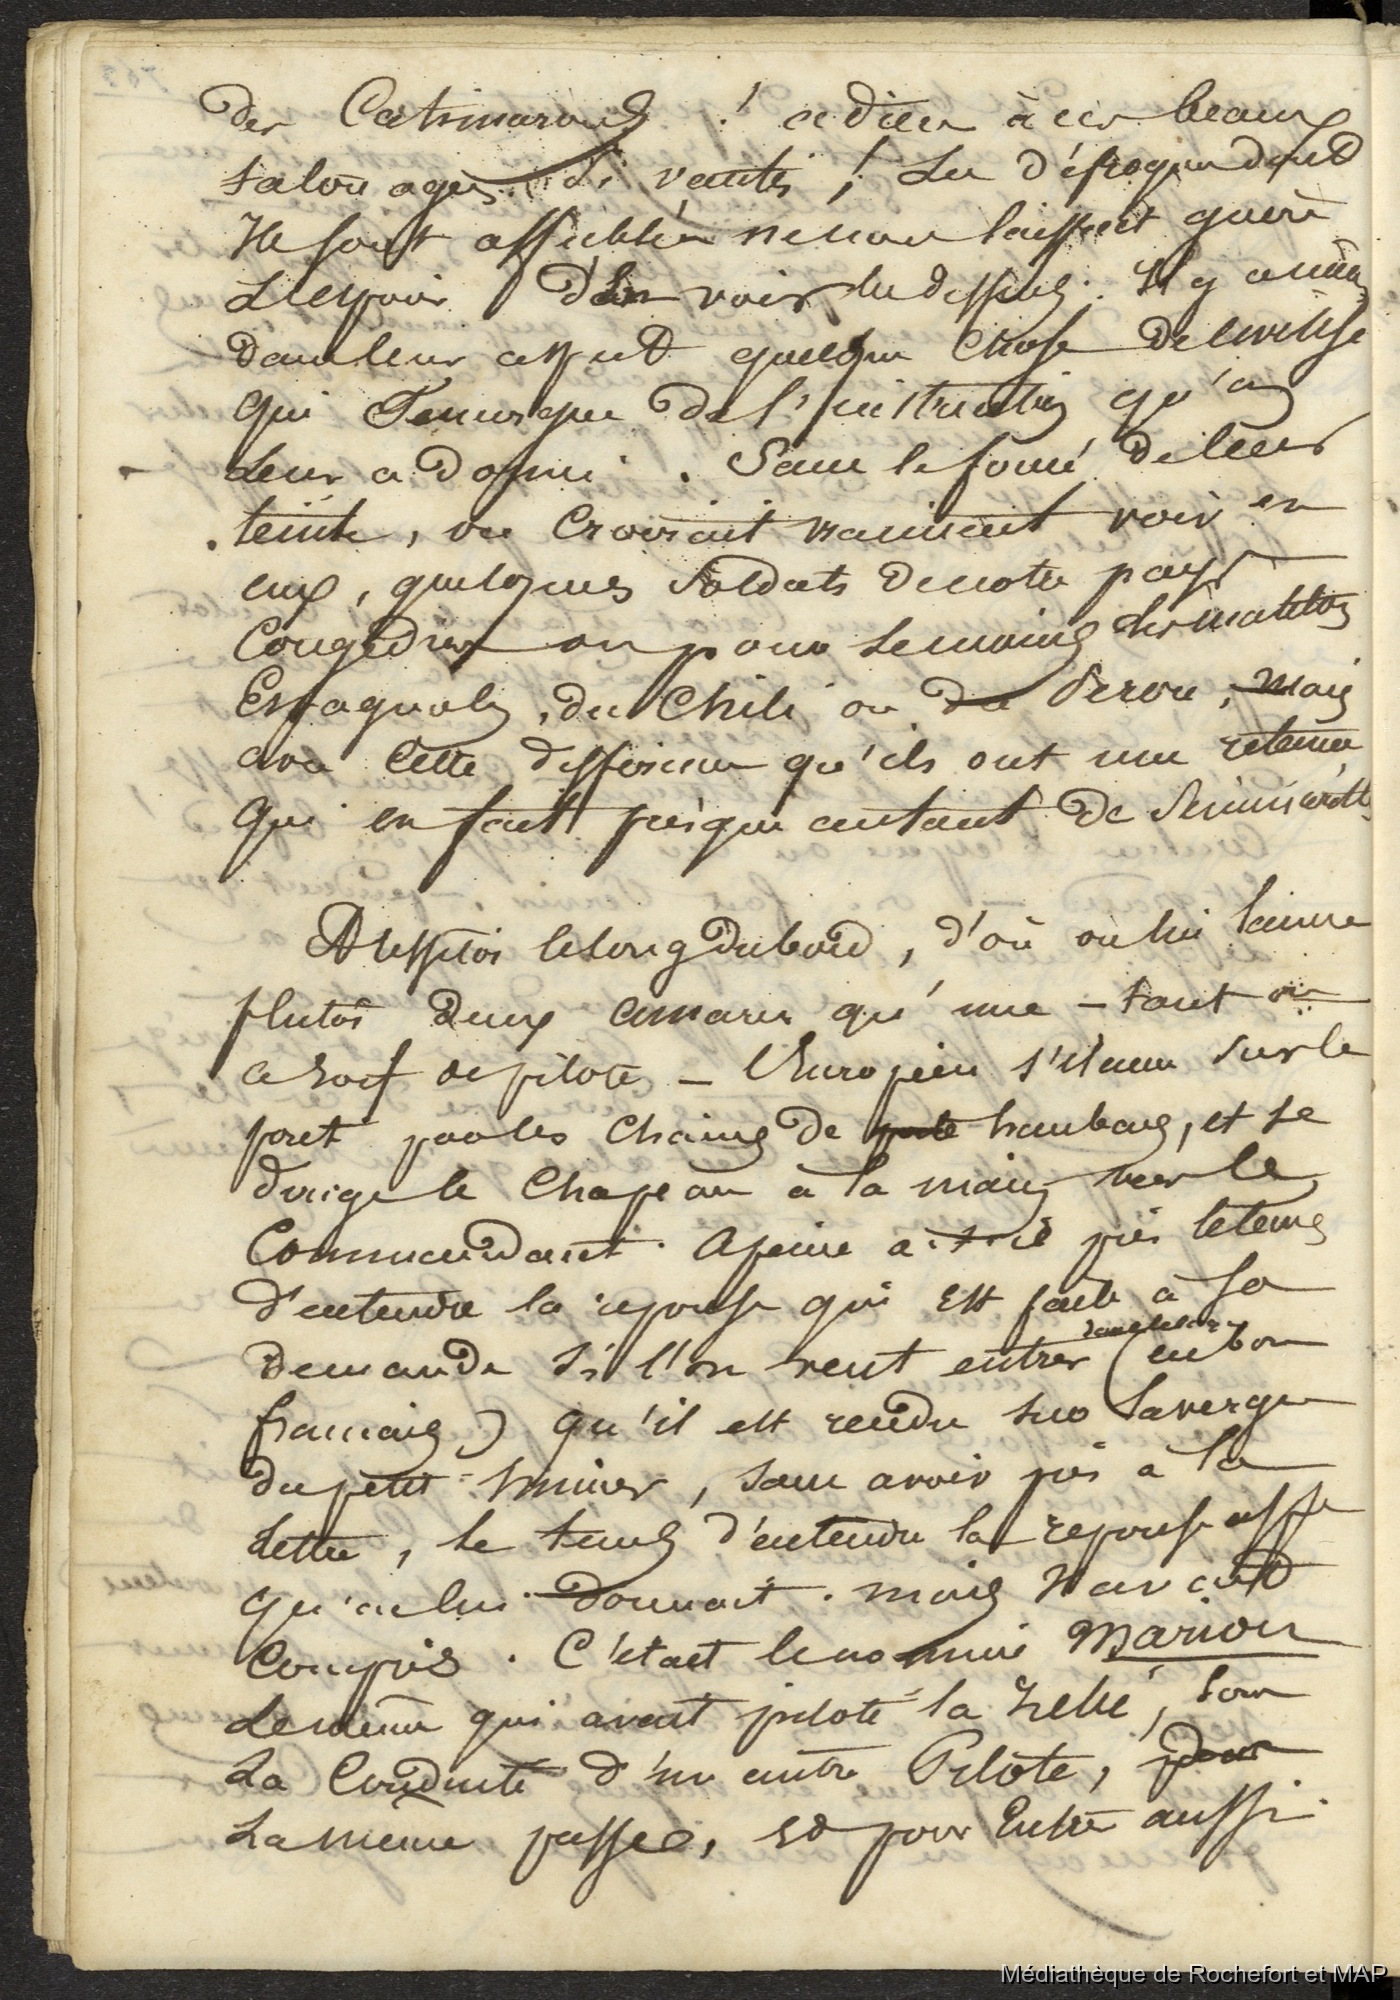 des Catimarons ! adieu à ces beaux
tatouages si vantés ! Les défroques dont
Ils sont affublés ne nous laissent guère
L'espoir d'en voir les dessins. Il y a même
dans leur aspect quelque chose de civilisé
qui s'en va de l'instruction qu'on
Leur a donné. Sans le foncé de leur
teinte, on croirait vraiment voir en
eux, quelques Soldats de notre pays
Congédiés ou pour le moins des matelots
Espagnols, du Chili ou du Pérou, mais
avec cette différence qu'ils ont une retenue
qui en fait presque autant de Séminaristes

Aussitôt le long du bord, d'où on lui lance
plutôt deux amarres qu'une – tant on
a soif de pilote – l'Européen s'élance sur le
pont par les chaines de haubans, et se
dirige le Chapeau à la main vers le
Commandant. A peine a-t-il pris le temps
d'entendre la réponse qui est faite à sa
demande si l'on veut entrer (en bon
français) qu'il est rendu sur la vergue
du petit-hunier, sans avoir pris à la
Lettre, le temps d'entendre la réponse
qu'on lui donnait. mais il avait
Compris. C'était le nommé Marion
Le même qui avait piloté la Zélée, sous
La Conduite d'un autre Pilote, pour
La même passe, et pour Entrée aussi.
Médiathèque de Rochefort et MAP